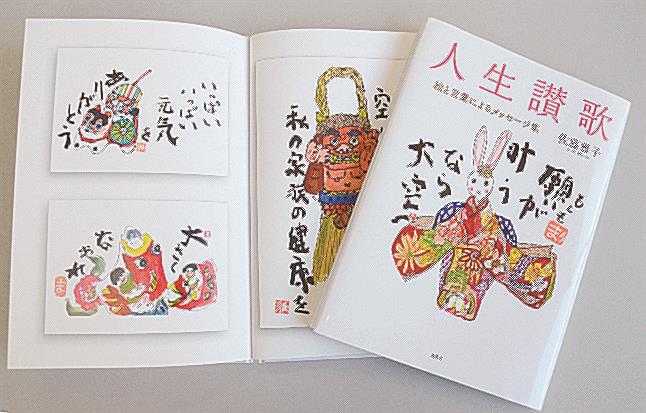 いっぱい
いっぱい
元気
を
ありがとう。
大きく
なあれ
空
私の家族の健康を
人生讃歌
絵と言葉によるメッセージ集
願
が
叶う
なら
大空へ